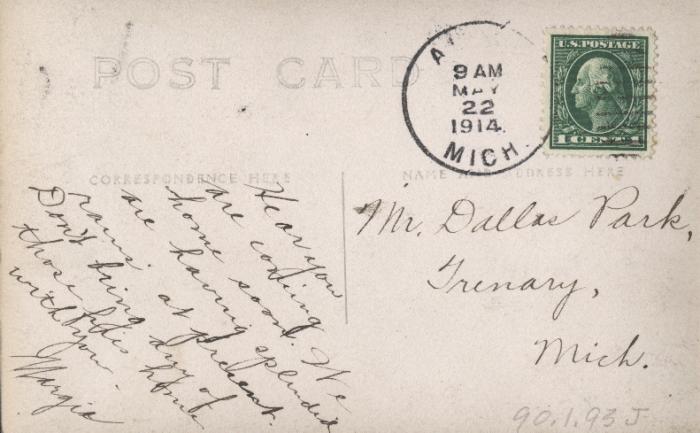 POST CARD
9 AM
MAY
22
1914.
MICH.
U.S. POSTAGE
1 CENT 1
CORRESPONDENCE HERE
NAME AND ADDRESS HERE
Hear you
are coming
home soon. We
are having splendid
rains. at present.
Don't bring any of
those home
with you.
Margie
Mr. Dallas Park,
Trenary,
Mich.
90.1.93 J